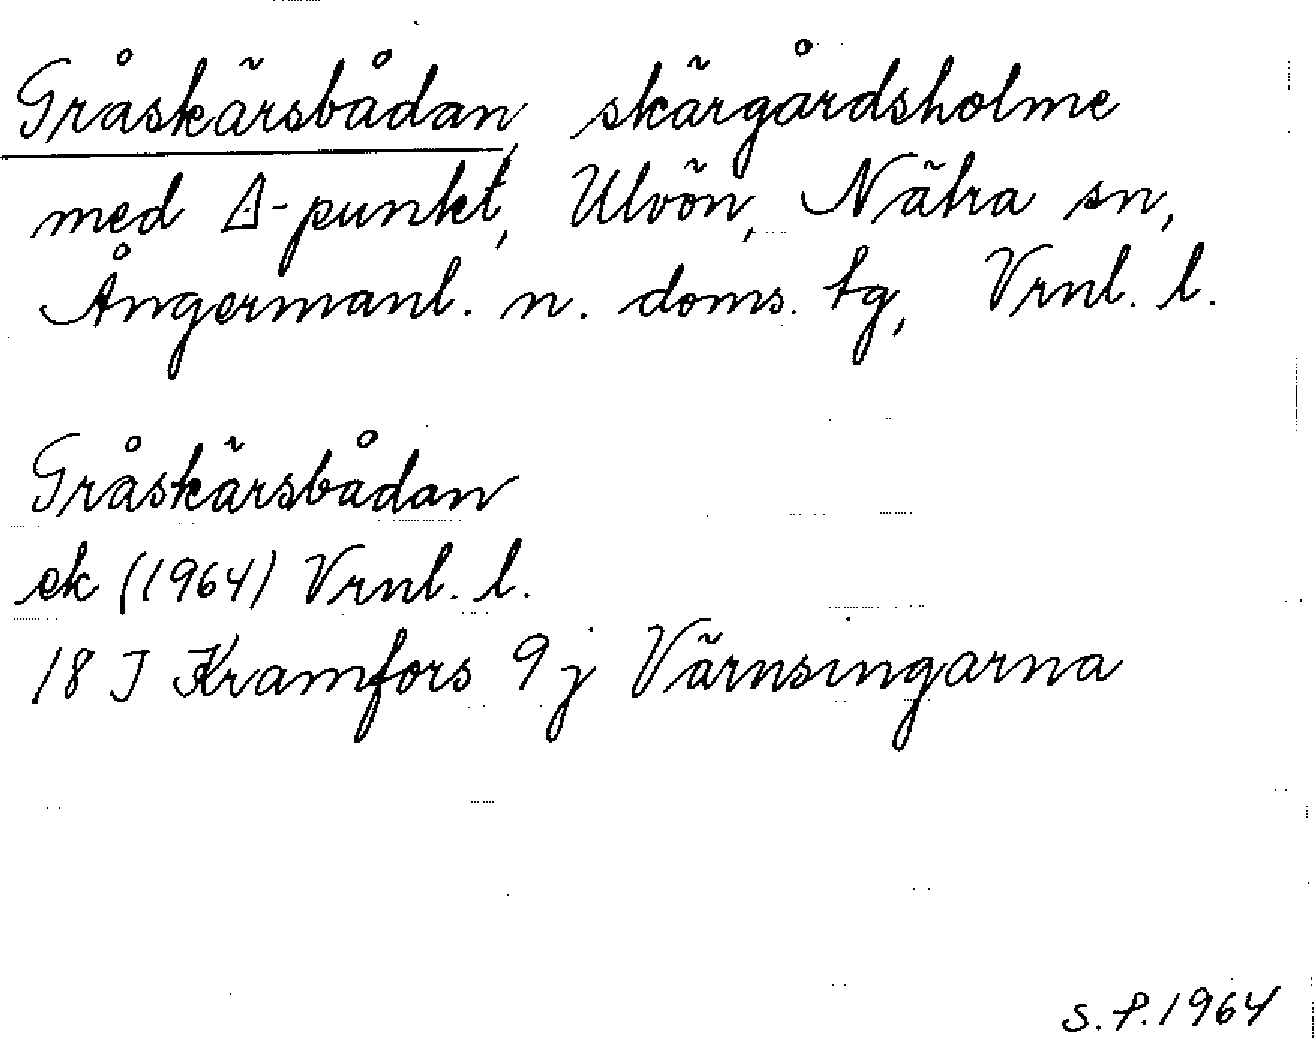 Gråskärsbådan, skärgårdsholme
med Δ-punkt, Ulvön, Nätra sn,
Ångermanl. n. doms. tg, Vrnl. l.
Gråskärsbådan
ek (1964) Vrnl. l.
18 J Kramfors 9 j Värnsingarna
S.P. 1964